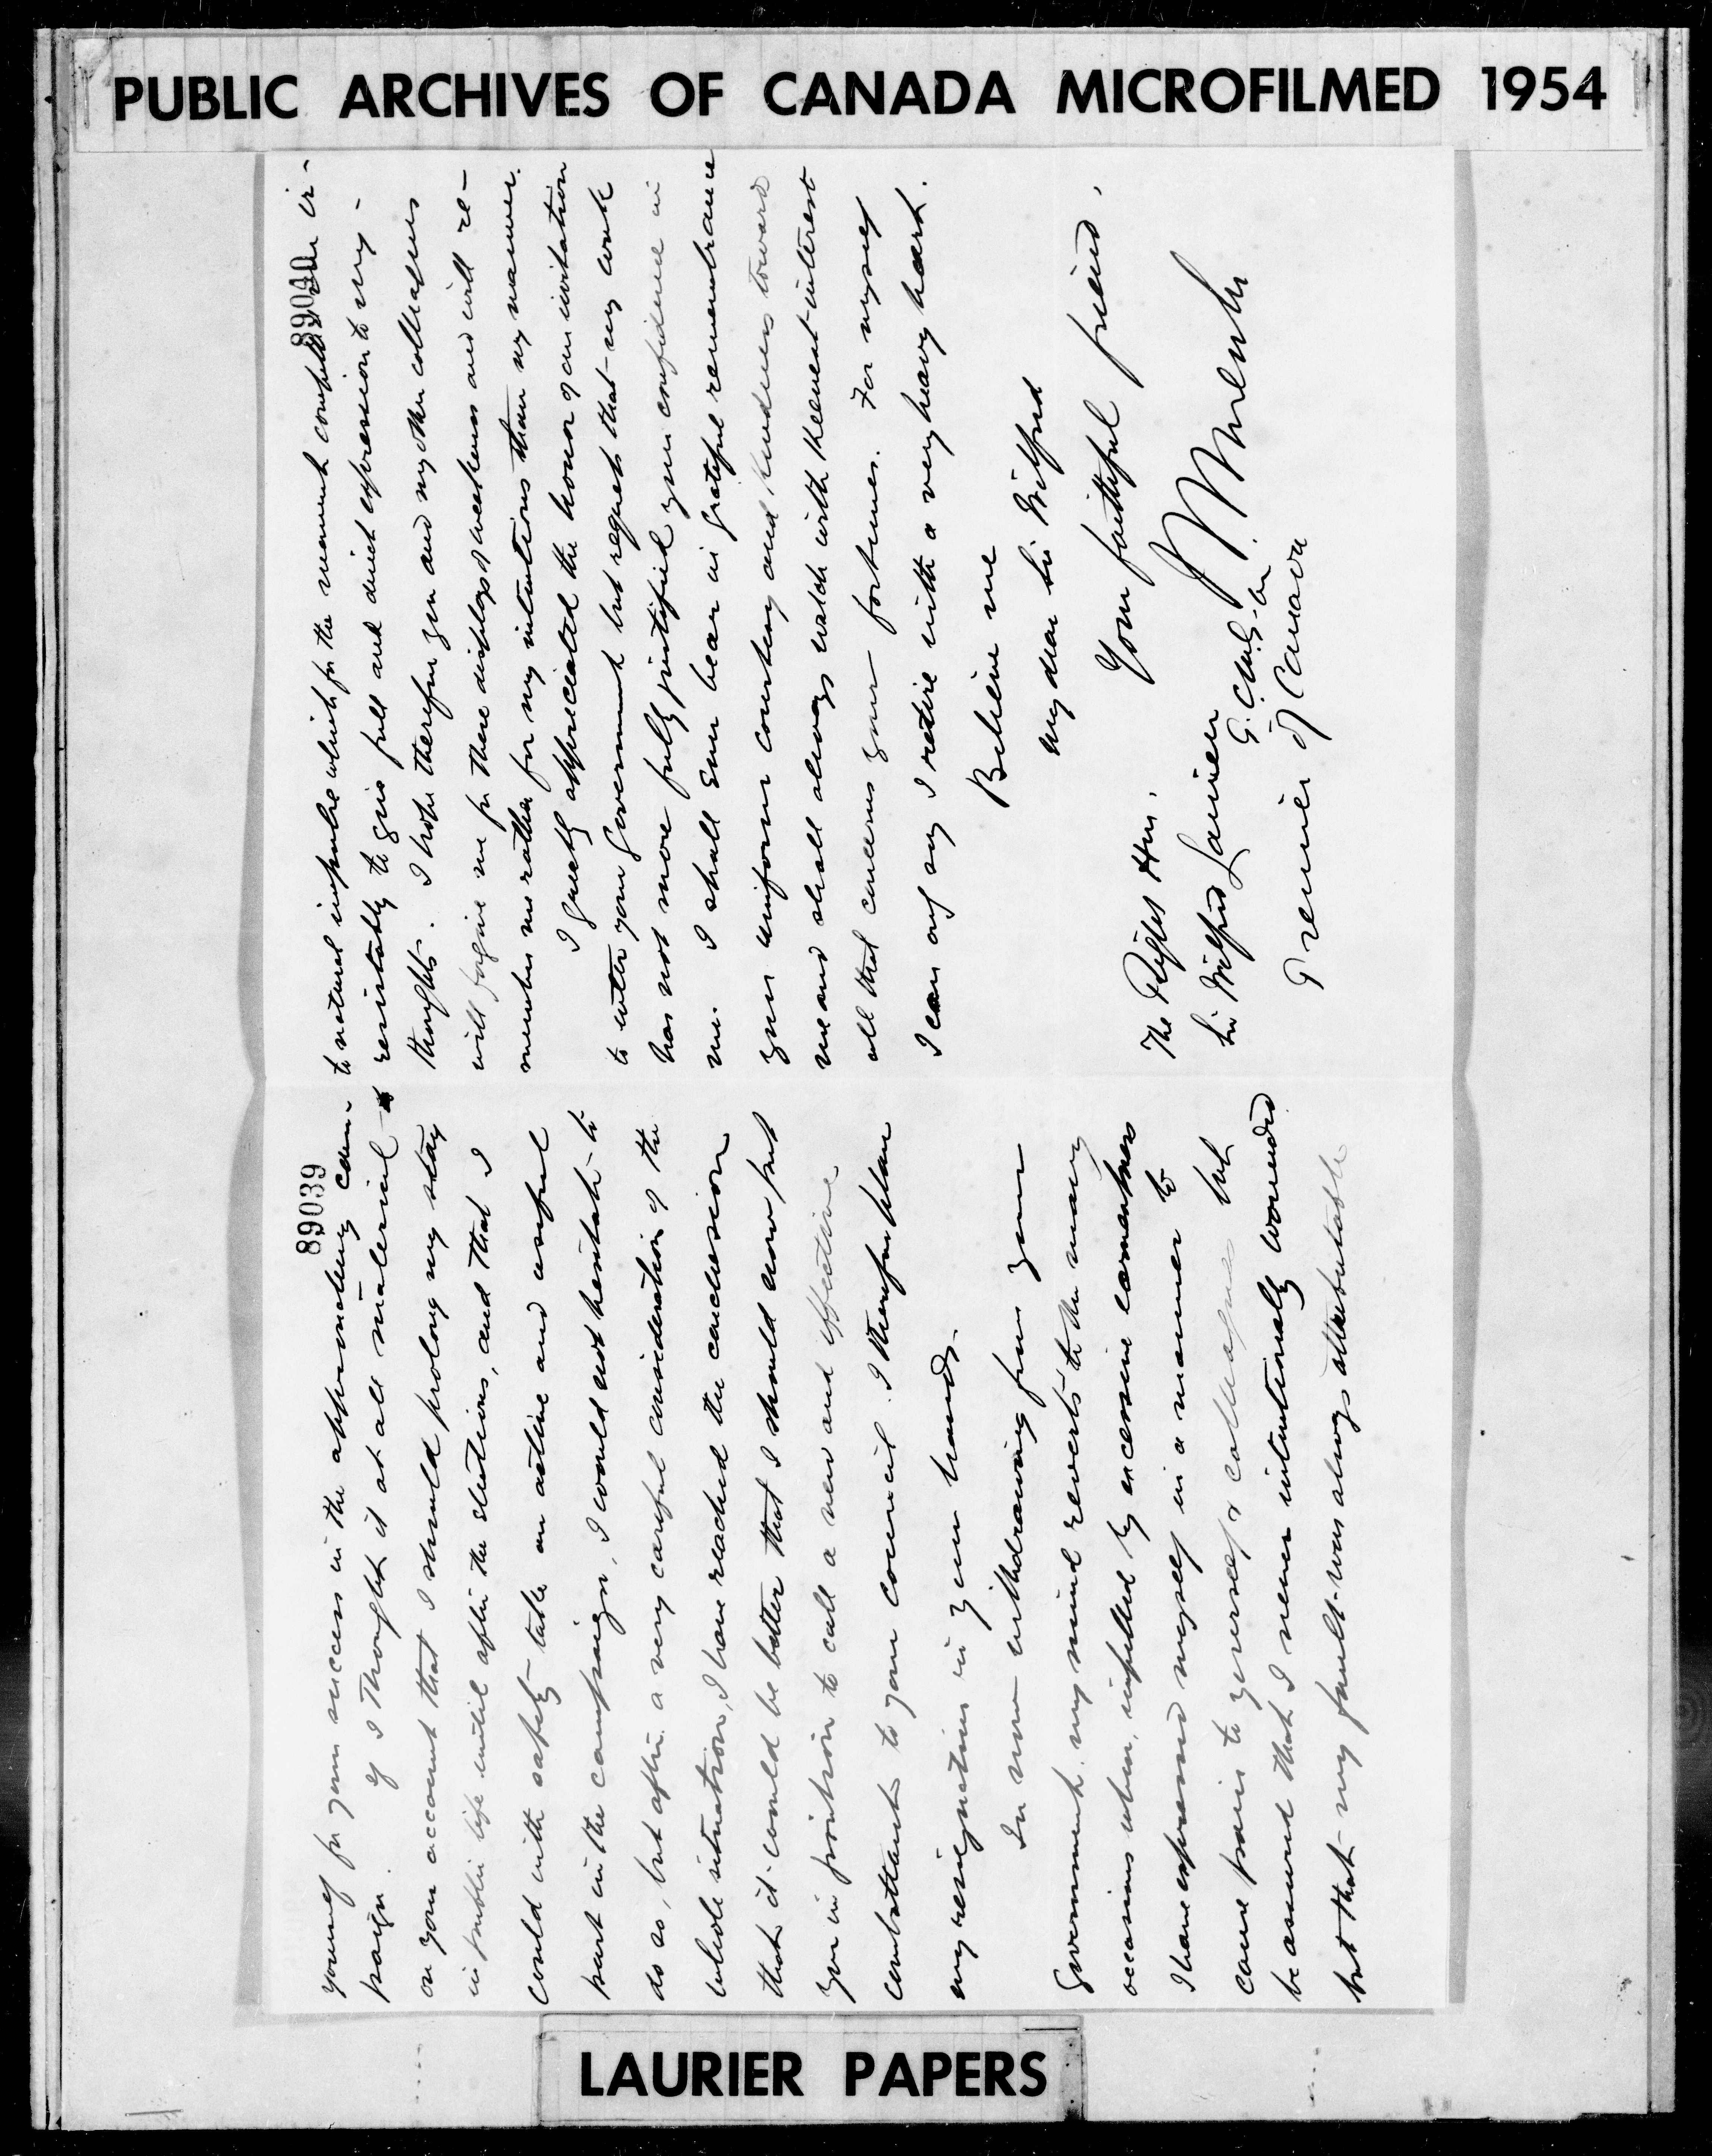 PUBLIC ARCHIVES OF CANADA MICROFILMED 1954
89039
yourself for your success in the approaching cam-
paign. If I thought it at all material
on your account that I should prolong my stay
in public life until after the elections, and that I
could with safety take an active and useful
part in the campaign, I would not hesitate to
do so, but after a very careful consideration of the
whole situation, I have reached the conclusion
that it would be better that I should now put
you in position to call a new and effective
combattant to your council. I therefore place
my resignation in your hands.
In now withdrawing from your
Government, my mind reverts to the many
occasions when, impelled by excessive earnestness
I have expressed myself in a manner to
cause pain to yourself & colleagues but
be assured that I never intentionally wounded
but that my fault was always attributable
89040
to natural impulse which for the moment ir-
resistably to give full and direct expression to my
thoughts. I hope therefore you and my other colleagues
will forgive me for these displays of weakness and will re-
member me rather for my intentions than my manner.
I greatly appreciated the honor of an invitation
to enter your Government but regrets that my work
has not more fully justified your confidence in
me. I shall ever bear in grateful remembrance
your uniform courtesy and kindness toward
me and shall always watch with keenest interest
all that concerns your fortunes. For myself
I can only say I retire with a very heavy heart.
Believe me
my dear Sir Wilfrid
Your faithful friend,
The Right Hon.
Sir Wilfrid Laurier
Premier of Canada
LAURIER PAPERS